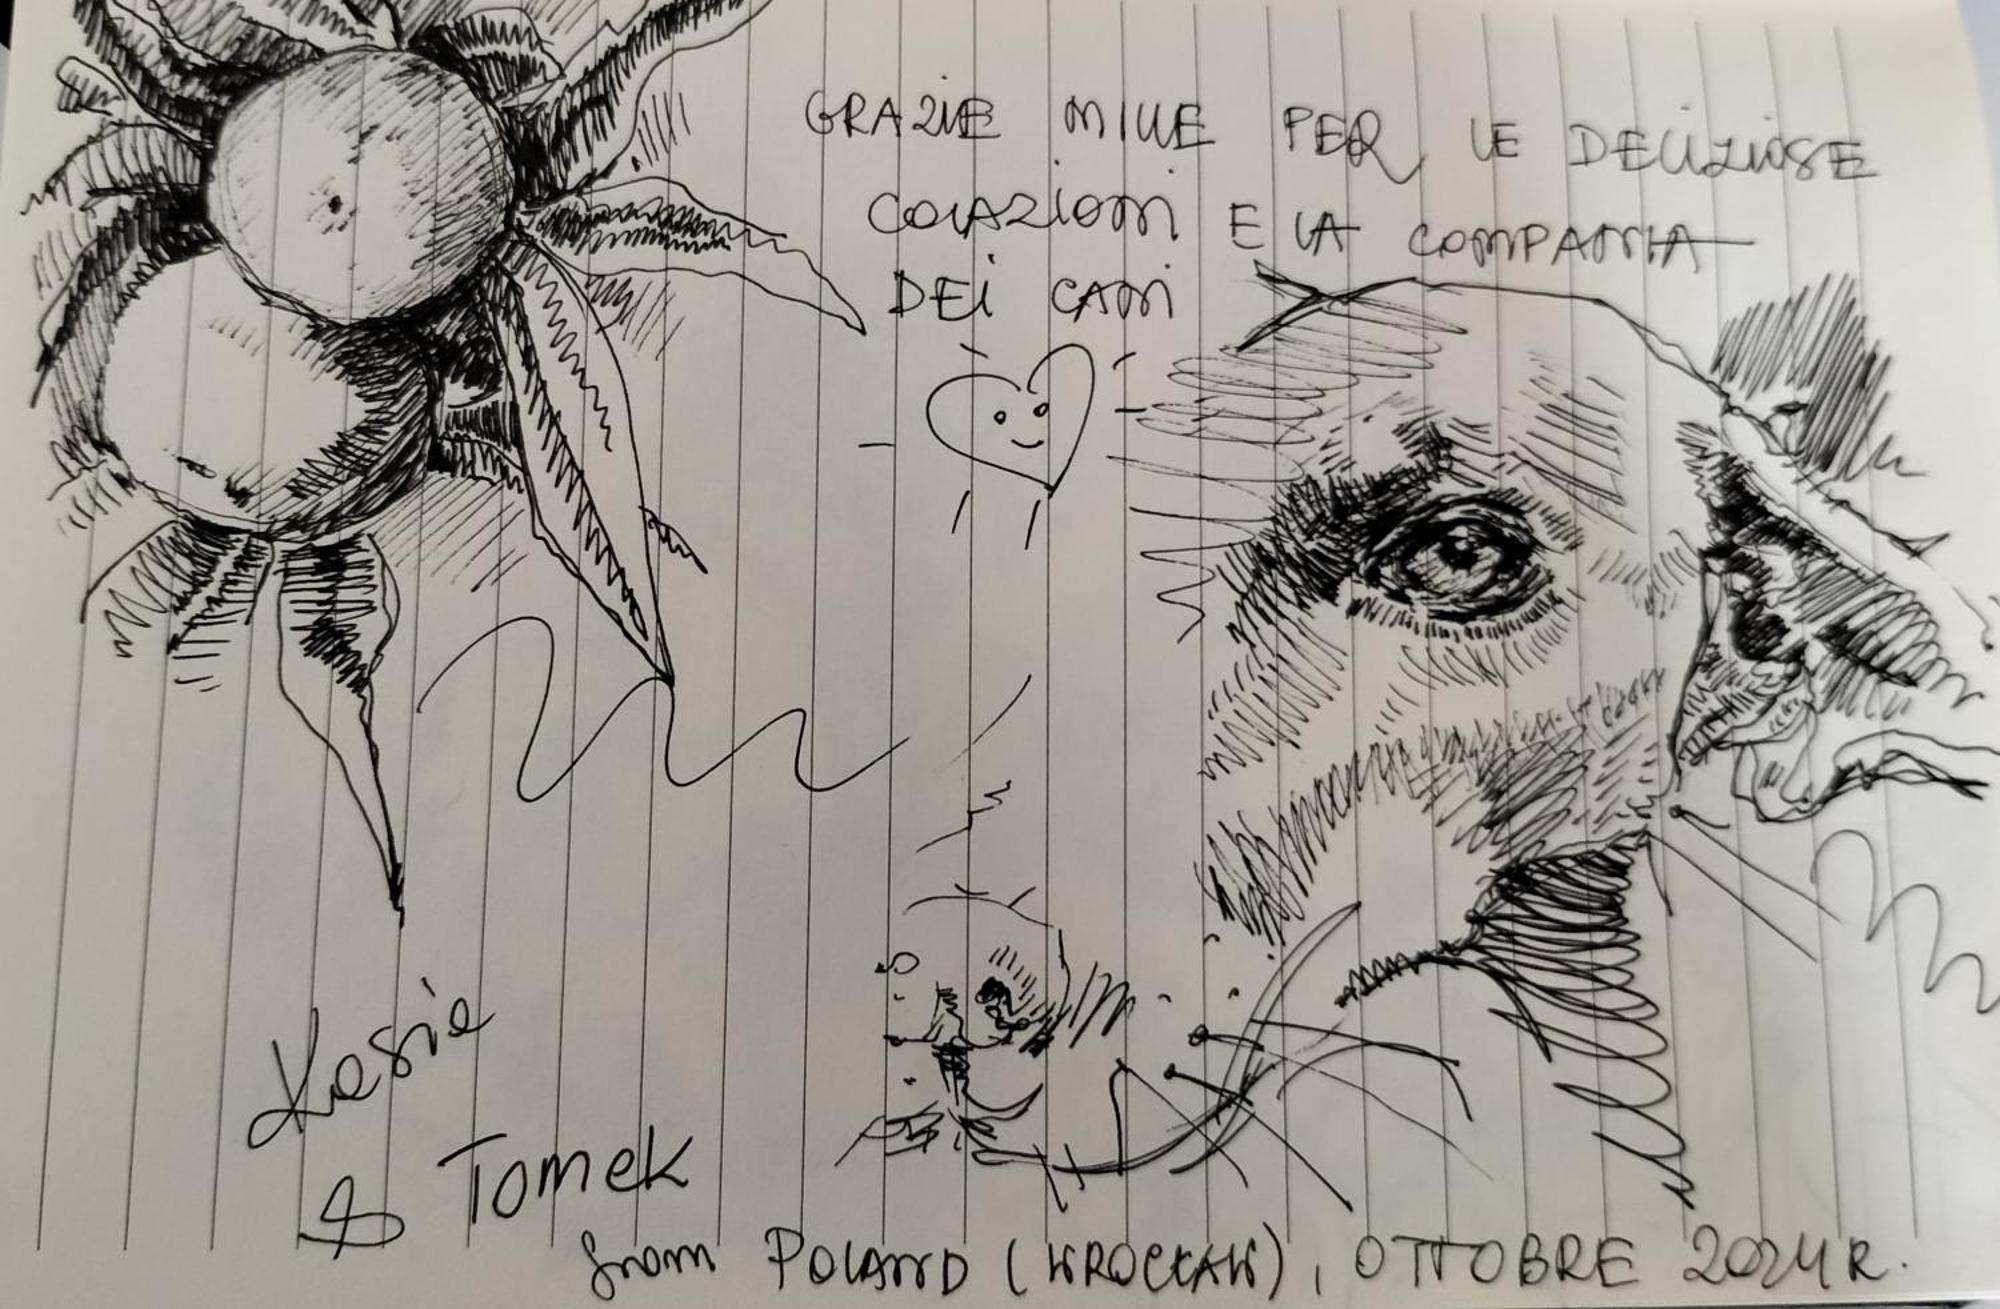 GRAZIE MILLE PER LE DELIZIOSE
COLAZIONI E LA COMPANIA
DEI CANI
Kasia
& Tomek
from POLAND (WROCŁAW), OTTOBRE 2024 R.